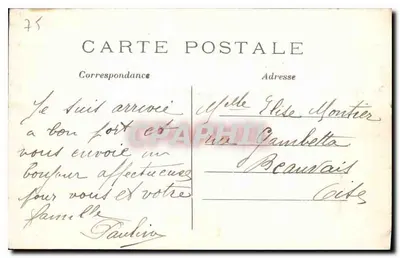 75
CARTE POSTALE
Correspondance
Adresse
Je suis arrivée
a bon port et
vous envoie un
bonjour affectueux
pour vous et votre
famille
Pauline
Mlle Elise Montier
rue Gambetta
Beauvais
Oise